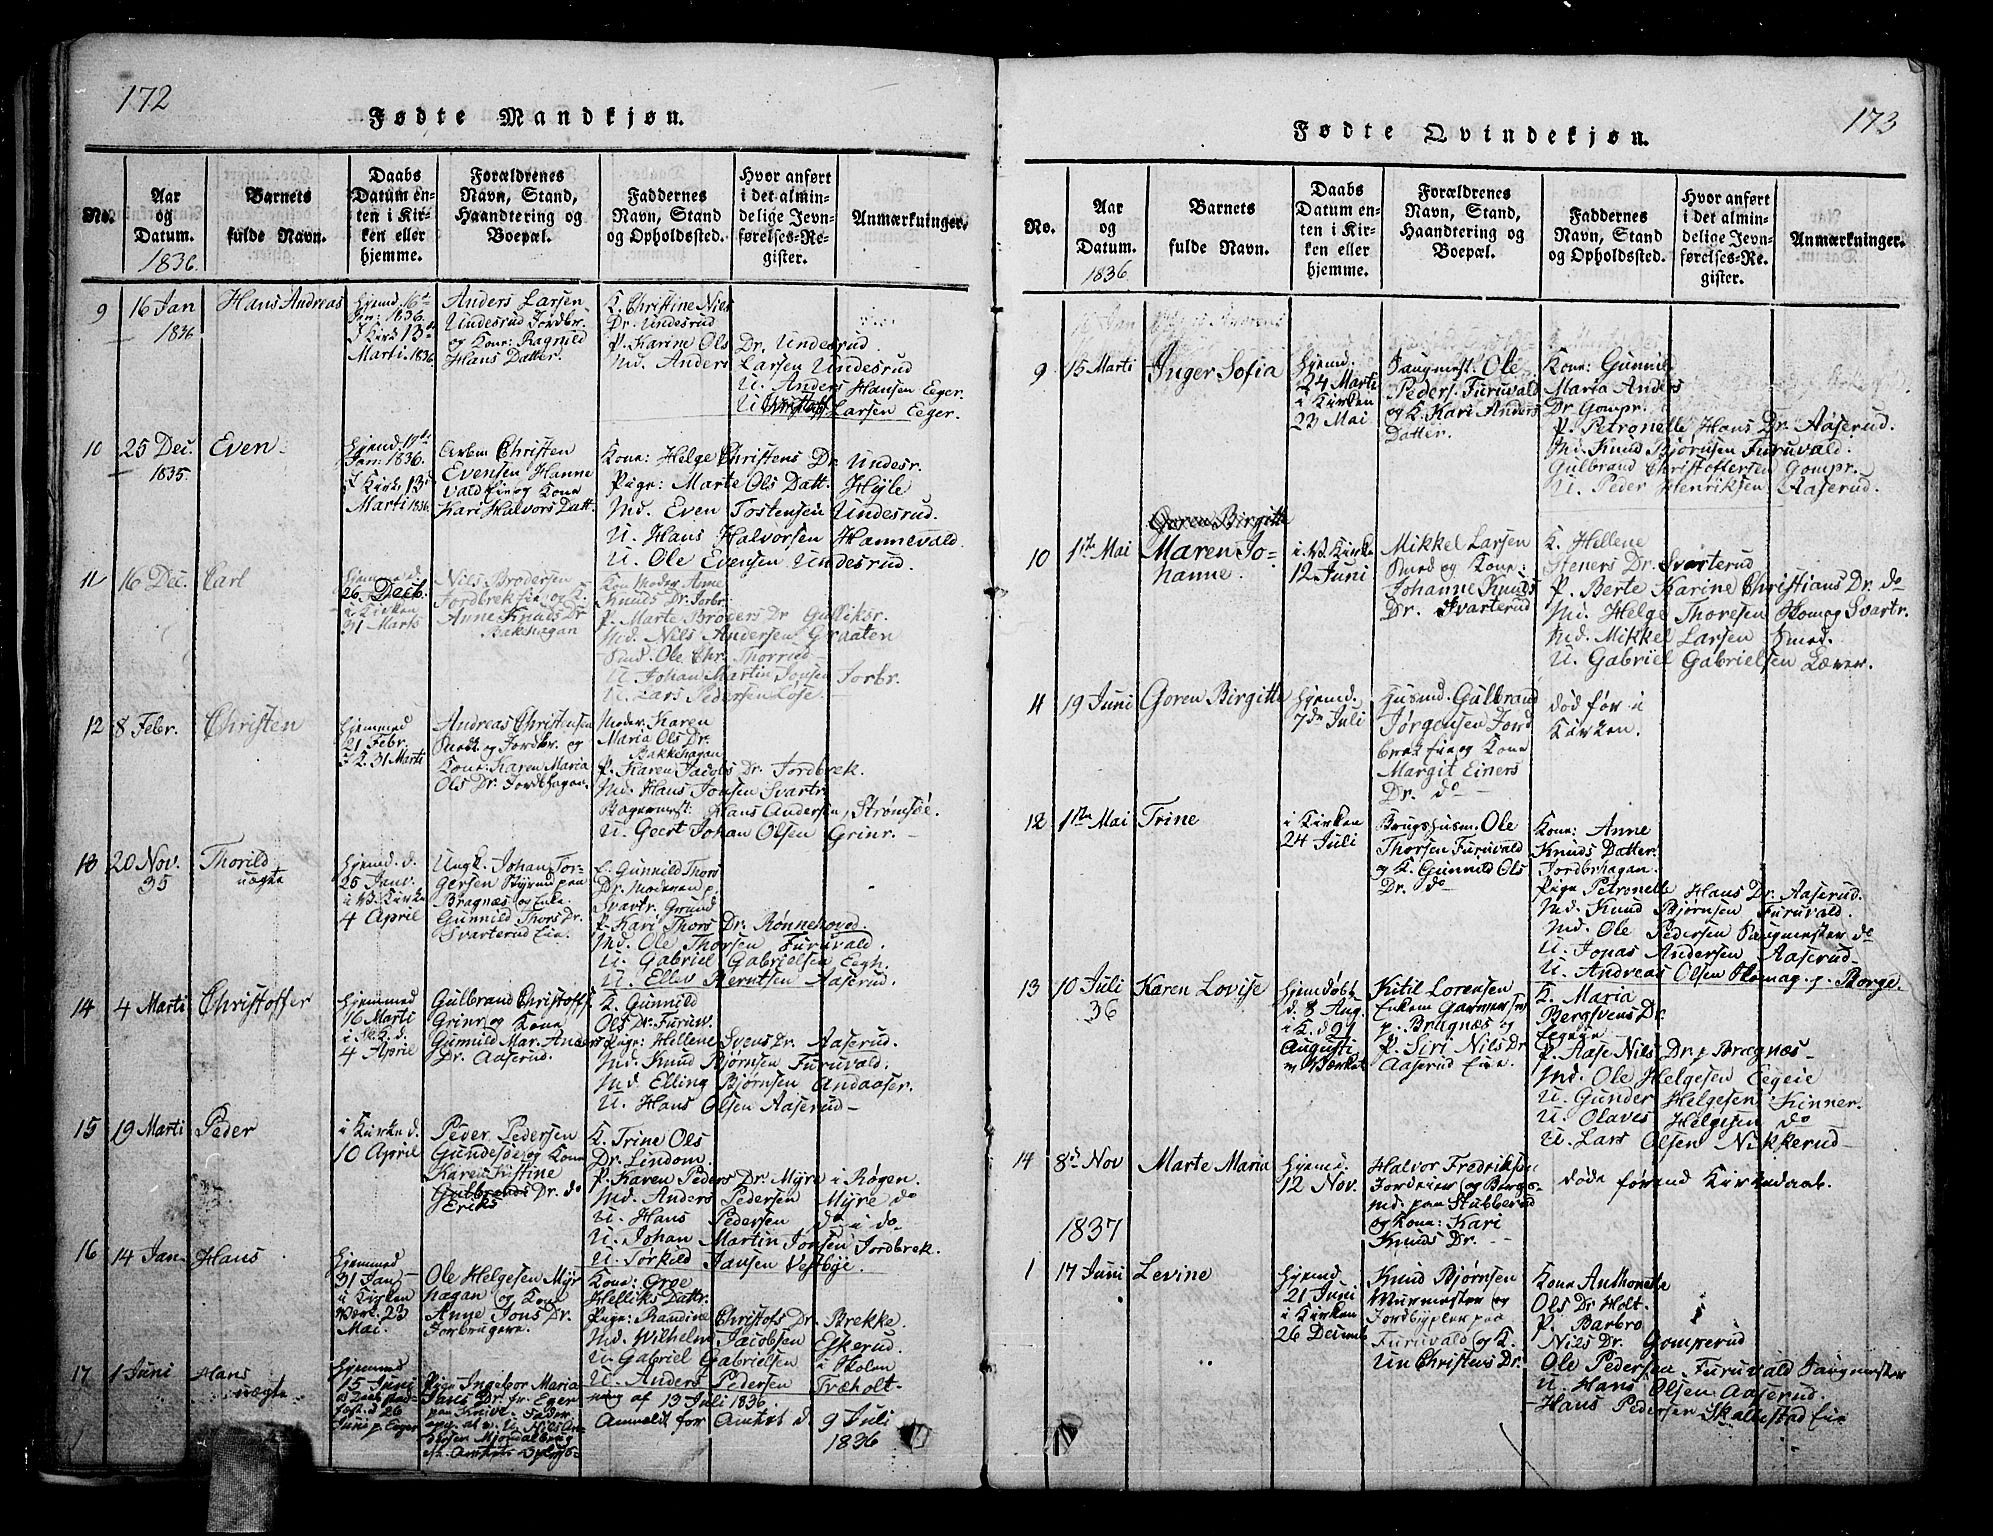 172
Fødte Mandkjøn.
No.
Aar og Datum.
1836.
Barnets fulde Navn.
Daabs Datum enten i Kirken eller hjemme.
Forældrenes Navn, Stand, Haandtering og Boepæl.
Faddernes Navn, Stand og Opholdssted.
Hvor anført i det almindelige Jevnførelses-Register.
Anmærkninger.
9
16 Jan
1836
Hans Andreas
Hjemd. 16de
Jan: 1836.
I Kirk. 13de
Marti. 1836
Anders Larsen
Undesrud Jordbr.
og Kone: Ragnild
Hans Datter.
K. Christine Nils
Dr. Undesrud
P. Karine Ols Dr. Undesrud
Md. Anders Larsen Undesrud
U. Anders Hansen Eeger.
U. Christoff Larsen Eeger.
10
25 Dec.
1835.
Even
Jan: 1836.
I Kirk. 13de
Marti 1836.
Christen
Evensen Hanne
vald Eie og Kone
Kari Halvors Datt.
Kone: Helge Christens Dr. Undesr.
Pige: Marte Ols Datt. Høyle
Md. Even Tostensen Undesrud.
U. Hans Halvorsen Hannevald.
U. Ole Evensen Undesrud.
11
16 Dec.
Carl
Hjemme d.
26 Decb.
i Kirken
31 Marts
Nils Brodersen
Jordbrek eie og K.
Anne Knuds Dr
Bakehagan
Moder Anne
Knuds Dr. Jorbr.
P. Marte Broders Dr Gulliksr.
Md. Nils Andersen Graaten
Smd. Ole Chr. Thorrud
U. Johan Martin Jonsen Jorbr.
U. Lars Pedersen Løse
12
8 Febr.
Christen
Hjemmed
21 Febr.
I K. 31 Marti
Andreas Christensen
Smed og Jordbr. og
Kone: Karen Maria
Ols Dr. Jordbhagan.
Moder: Karen
Maria Ols Dr.
Bakkehagan
P. Karen Jacobs Dr. Jordbrek.
Md. Hans Jonsen Svartr
Bagermest: Hans Andersen, Strømsøe.
U. Geert Johan Olsen Grinr.
13
20 Nov.
35
Thorild
uægte
Hjemd. d.
25 Janv.
i V. Kirke
4 April
Ungk. Johan Tor-
gersen Byrud paa
Bragnæs og Enke
Gunnild Thors Dr.
Svarterud Eie.
E. Gunnild Thors
Dr. Moderen p.
Svartr. Grund
P. Kari Thors Dr. Rønnehoved
Md. Ole Thorsen Furuvald.
U. Gabriel Gabrielsen Eegh.
U. Ellev Berntsen Aaserud.
14
4 Marti
Christoffer
Hjemmed
16 Marti
4 April
Gulbrand Christoffs.
Grinr og Kone
Gunnild Mar. Anders
Dr. Aaserud.
K. Gunnild
Ols Dr. Furuv.
Pige: Hellene Svens Dr. Aaserud.
Md. Knud Bjørnsen Furuvald.
Md. Elling Bjørnsen Andaaser.
U. Hans Olsen Aaserud
15
19 Marti
Peder
i Kirke d.
10 April
Peder Pedersen
Gundesøe og Kone
Karen Kistine
Gulbrands Dr. do
Eriks
K. Trine Ols
Dr. Lindom.
P. Karen Peders Dr. Myre i Røgen.
Md. Anders Pedersen Myre do
U. Hans Pedersen do i do
U. Johan Martin Jonsen Jordbrek.
U. Torkild Jansen Vestbye.
16
14 Jan.
Hans
Hjemmed
31 Jan
i Kirken
23
Mai.
Ole Helgesen Myr
hagan og Kone
Anne Jons Dr.
Jorbrugere.
Kone: Groe
Helliks Dattr.
Pige: Randine Christofs Dr. Brekke.
Md. Wilhelm Jacobsen Eskerud.
U. Gabriel Gabrielsen i Skolen
U. Anders Pedersen Træholt
17
1 Juni
Hans
uægte
Hjemmed
15 Juni
Juni p. Eger
Pige Ingebor Maria
af 13 Juli 1836.
Anmeldt for Amtet d. 9 Juli
1836
173
Fødte Qvindekjøn.
No.
Aar og Datum.
1836
Barnets fulde Navn.
Daabs Datum enten i Kirken eller hjemme.
Forældrenes Navn, Stand, Haandtering og Boepæl.
Faddernes Navn, Stand og Opholdssted.
Hvor anført i det almindelige Jevnførelses-Register.
Anmærkninger.
9
15 Marti
Inger Sofia
Hjemd.
24 Marti
i Kirken
23 Mai
Saugmest. Ole
Peders. Furuvald
og K. Kari Anders
Datter.
Kone: Gunnild
Maria Anders
Dr Gompr.
P. Petronelle Hans Dr. Aaserud.
Md. Knud Bjørnsen Furuvald.
Gulbrand Christoffersen Gompr.
U. Peder Henriksen Aaserud.
10
1ste Mai
Goren Birgitte
Maren Jo-
hanne.
i V. Kirke
12 Juni
Mikkel Larsen
Smed og Kone:
Johanne Knuds
Dr. Svarterud
K. Hellene
Steners Dr. Svarterud
P. Berte Karine Christians Dr. do
Md. Helge Thoresen Skomag Svartr.
Md. Mikkel Larsen Smed.
U. Gabriel Gabrielsen Lærer.
11
19 Juni
Goren Birgitte
Hjemd.
7de Juli
Husmd. Gulbrand
Jørgensen Jord
brek eie og Kone
Margit Einers
Dr. do
død før i
Kirken.
12
1ste Mai
Trine
i Kirken
24 Juli
Brugshusm. Ole
Thorsen Furuvald
og K. Gunnild Ols
Dr. do
Kone: Anne
Knuds Datter.
Jordbrhagan.
Pige Petronelle Hans Dr. Aaserud.
Md. Knud Bjørnsen Furuvald.
Md. Ole Pedersen Saugmester do
U. Jonas Andersen Aaserud.
U. Andreas Olsen Skomag. p. Borge.
13
10 Juli
36
Karen Lovise
Hjemdøbt
d. 8 Aug.
i K. d 21
Augusti
Kitil Lorensen
p. Bragnæs og
P. Siri Nils Dr
Aaserud Eie.
K. Maria
Bergsvens Dr.
Egeie
P. Aase Nils Dr. p Bragnæs
Md. Ole Helgesen Eegeie
U. Gunder Helgesen Kinner.
U. Olaves Helgesen do
U. Lars Olsen Nikkerud
14
8de Nov
Marte Maria
Hjemd.
12 Nov.
Halvor Fredriksen
Jordeier og Bergs-
md. paa Stubberud
og Kone: Kari
Knuds Dr.
døde førend Kirkedaab.
1837
1
17 Juni
Levine
Hjemd
21 Juni
i Kirken
26 Decemb
Knud Bjørnsen
Murmester og
paa
Furuvald og K.
Christens Dr.
Kone Anthonette
Ols Dr Holt
P. Barbro
Nils Dr. Gomperud
Ole Pedersen Furuvald Saugmester
U. Hans Olsen Aaserud.
Hans Pedersen Skallestad Eie